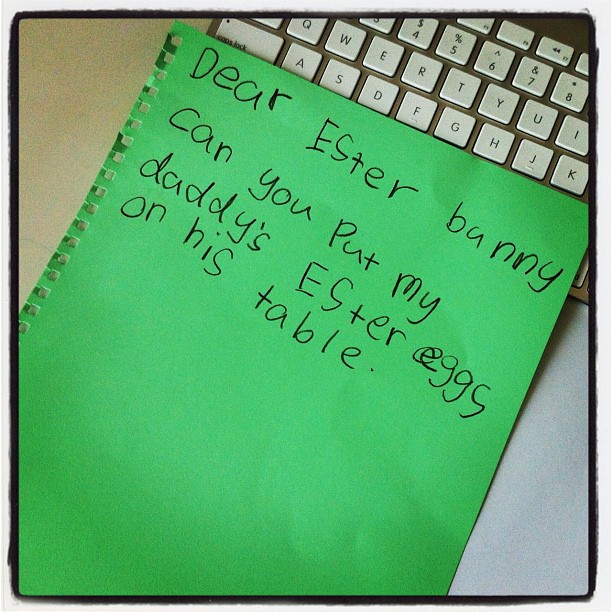 $ % ^ & *
4 5 6 7 8
Q W E R T Y U I
caps lock A S D F G H J K
Dear Ester bunny
can you Put my
daddy's Ester eggs
on his table.